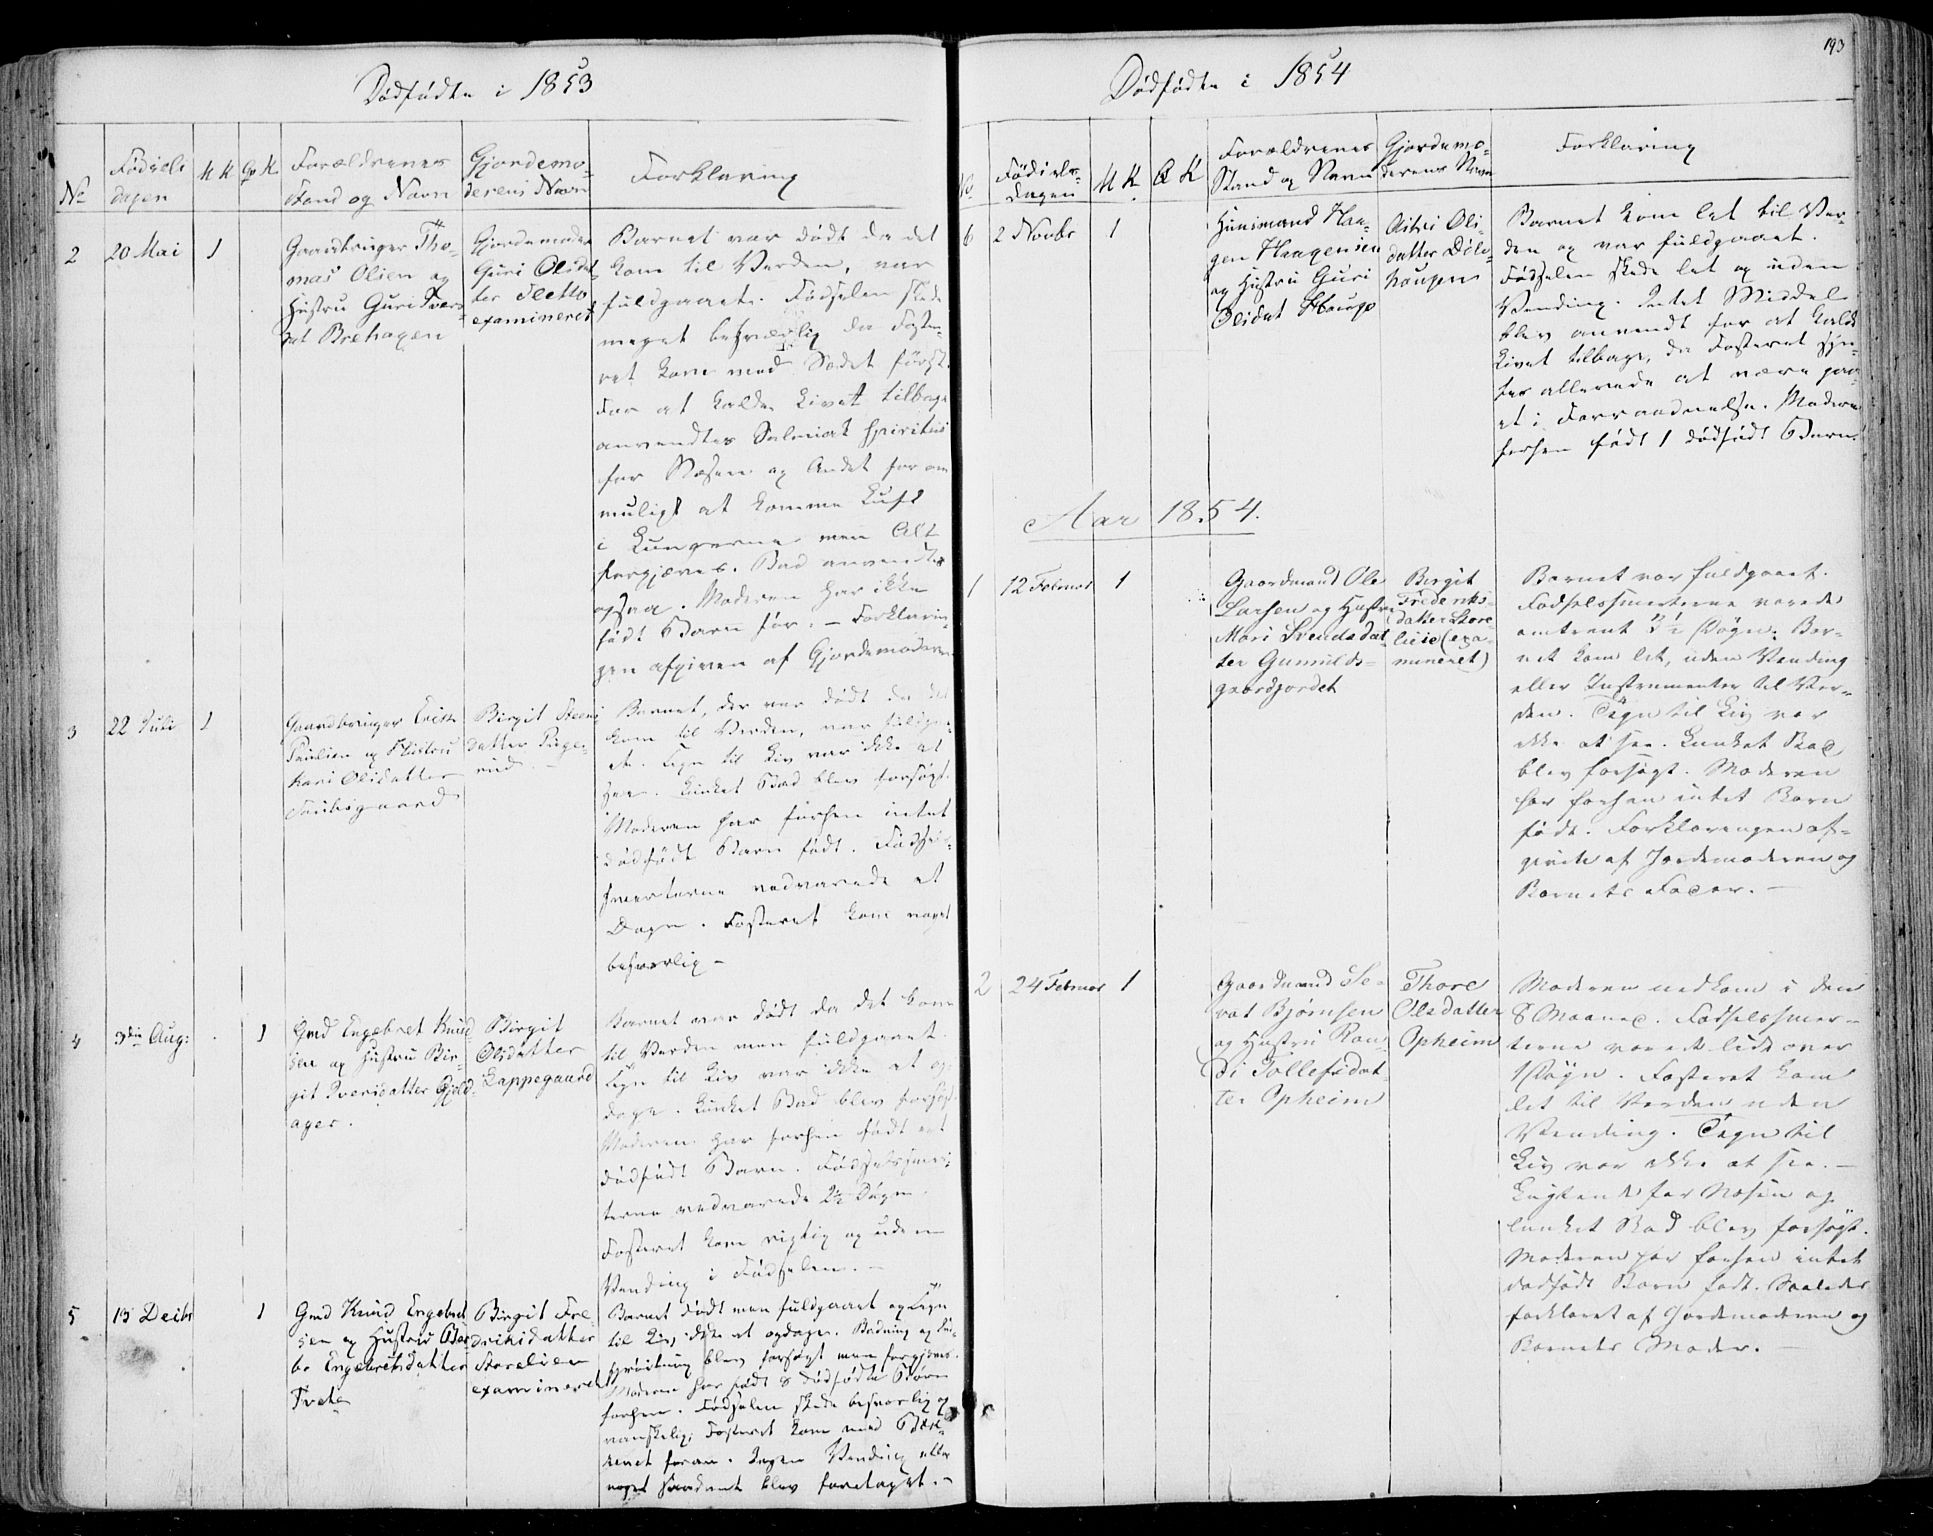 Dødfødte i 1853
No
Fødsels
dagen
M K
Qv K
Forældrenes
Stand og Navn
Gjordemo-
derens Navn
Forklaring
2
20 Mai
1
Gaardbruger Tho-
mas Olsen og
Hustru Guri Ivers
dat Brehagen
Gjordemoder
Guri Olsdat
ter Sletto
examineret
Barnet var dødt da det
kom til Verden, var
fuldgaaet. Fødselen skede
meget besværlig da Foste-
ret kom med Sædet først
For at kalde Livet tilbage
anvendtes Salmiak spiritus
for Næsen og Andet for om
muligt at komme Luft
i Lungerne men Alt
forgjæves. Bad anvendtes
ogsaa. Moderen har ikke
født Barn før. - Forklarin-
gen afgiven af Gjordemoderen
3
22 Juli
1
Gaardbruger Erik
Paulsen og Hustru
Kari Olsdatter
Birgit Steens
datter
rud. -
Barnet, der var dødt da det
kom til Verden, var fuldgaa-
et. Tegn til Liv var ikke at
see. Lunket Bad blev forsøgt.
Moderen har forhen intet
dødfødt Barn født. Fødsels-
smerterne vedvarede et
Døgn. Fosteret kom noget
besværlig -
4
3die Aug:
1
Gmd Engebret Knud
sen og Hustru Bir-
git Iversdatter Gjeld-
ager.
Birgit
Olsdatter
Lappegaard
Barnet var dødt da det kom
til Verden men fuldgaaet.
Tegn til Liv var ikke at op
dage. Lunket Bad blev forsøgt.
Moderen har forhen født et
dødfødt Barn. Fødselssmer-
terne vedvarede 2½ Døgn.
Fosteret kom rigtig og uden
Vending i Fødselen. -
5
15 Decbr
1
Gmd Knud Engebret
sen og Hustru Bar
bo Engebretsdatter
Tvete
Birgit Fre
driksdatter
Storelien
examineret
Barnet dødt men fuldgaaet og Tegn
til Liv ikke at opdage. Badning og Ind-
sprøitning blev forsøgt men forgjæves.
Moderen har født 8 dødfødte Børn
forhen. Fødselen skede besværlig og
vanskelig. Fosteret kom med
foran. Ingen Vending eller
noget saadant blev foretaget. -
193
Dødfødte i 1854
No
Fødsels-
dagen
M K.
Q K
Forældrenes
Stand og Navn
Gjordemo-
derens Navn
Forklaring
6
2 Novbr
1
Huusmand Haa-
gen Haagensen
og Hustru Guri
Olsdat Hauge
Astri Ols-
datter Døle-
haugen
Barnet kom let til Ver-
den og var fuldgaaet.
Fødselen skede let og uden
Vending. Intet Middel
blev anvendt for at kalde
Livet tilbage, da Fosteret syn-
tes allerede at være gaa-
et i Forraadnelse. Moderen
forhen født 1 dødfødt Barn.
Aar 1854.
1
12 Februar
1
Gaardmand Ole
Larsen og Hustru
Mari Svendsdat-
ter Gunnulds-
gaardjordet
Birgit
Frederiks-
datter Store-
lie (exa-
mineret)
Barnet var fuldgaaet.
Fødselssmerterne varede
omtrent 3½ Døgn. Bar-
net kom let, uden Vending
eller Instrumenter til Ver-
den. Tegn til Liv var
ikke at see. Lunket Bad
blev forsøgt. Moderen
har forhen intet Barn
født. Forklaringen af-
givet af Jordemoderen og
Barnets Fader. -
2
24 Februar
1
Gaardmand Se-
vat Bjørnsen
og Hustru Ran-
di Tollefsdat-
ter Opheim
Thore
Olsdatter
Opheim
Moderen nedkom i den
8 Maaned. Fødselssmer-
terne varede lidt over
1 Døgn. Fosteret kom
let til Verden uden
Vending. Tegn til
Liv var ikke at see. -
Lugtende for Næsen og
lunket Bad blev forsøgt.
Moderen har forhen intet
dødfødt Barn født. Saaledes
forklaret af Jordemoderen og
Barnets Moder. -